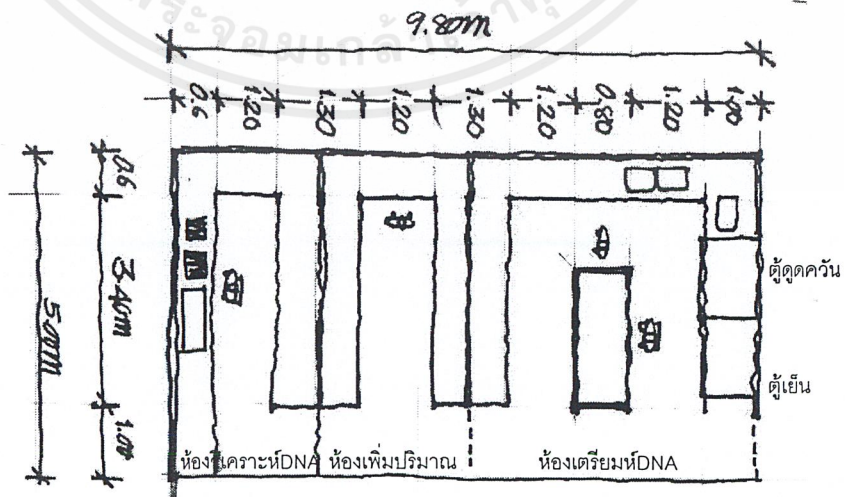 พระจอมเกล้า
9.80m
0.6
1.20
1.30
1.20
1.30
1.20
0.80
1.20
1.00
0.6
3.40m
1.00
5.00m
ตู้ดูดควัน
ตู้เย็น
ห้องวิเคราะห์DNA ห้องเพิ่มปริมาณ ห้องเตรียมห์DNA